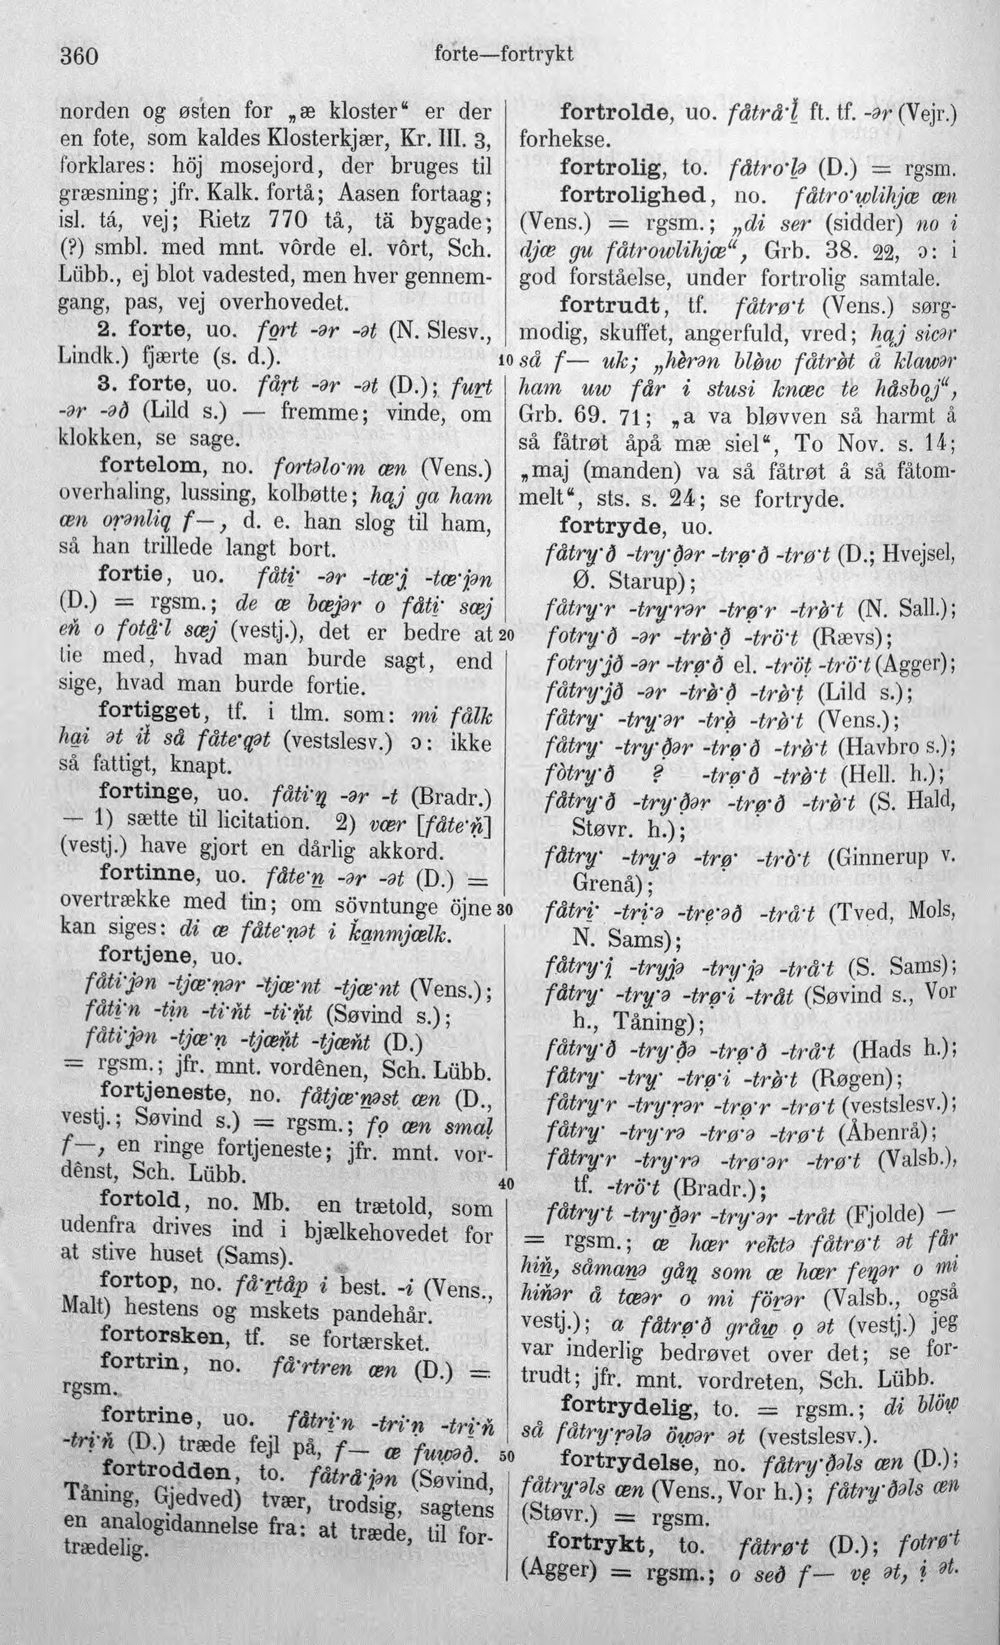 360
forte—fortrykt
norden og østen for „æ kloster“ er der
en fote, som kaldes Klosterkjær, Kr. III. 3,
forklares: höj mosejord, der bruges til
græsning; jfr. Kalk. fortå; Aasen fortaag;
isl. tá, vej; Rietz 770 tå, tä bygade;
(?) smbl. med mnt. vôrde el. vôrt, Sch.
Lübb., ej blot vadested, men hver gennem-
gang, pas, vej overhovedet.
2. forte, uo. fo̤rt -ər -ət (N. Slesv.,
Lindk.) fjærte (s. d.).
3. forte, uo. får̤t -ər -ət (D.); fur̤t
-ər -əð (Lild s.) — fremme; vinde, om
klokken, se sage.
fortelom, no. fortəlo·m œn (Vens.)
overhaling, lussing, kolbøtte; ha̤j ga ham
œn or̤ənliq f—, d. e. han slog til ham,
så han trillede langt bort.
fortie, uo. fåti̤· -ər -tœ·j -tœ·jən
(D.) = rgsm.; de œ bœjər o fåti· sœj
eň o fotå̤·l sœj (vestj.), det er bedre at
tie med, hvad man burde sagt, end
sige, hvad man burde fortie.
fortigget, tf. i tlm. som: mi fålk
ha̤i ət it så fåte·qət (vestslesv.) ɔ: ikke
så fattigt, knapt.
fortinge, uo. fåti·ŋ̤ -ər -t (Bradr.)
— 1) sætte til licitation. 2) vœr [fåte·ň̤]
(vestj.) have gjort en dårlig akkord.
fortinne, uo. fåte·n̤ -ər -ət (D.) =
overtrække med tin; om sövntunge öjne
kan siges: di œ fåte·n̤ət i ka̤nmjœlk.
fortjene, uo.
fåti·jən -tjœ·n̤ər -tjœ·nt -tjœ·nt (Vens.);
fåti̤·n -tin -ti·ňt -ti·ňt (Søvind s.);
fåti·jən -tjœ·n̤ -tjœňt -tjœňt (D.)
= rgsm.; jfr. mnt. vordênen, Sch. Lübb.
fortjeneste, no. fåtjœ·n̤əst œn (D.,
vestj.; Søvind s.) = rgsm.; fo̤ œn smal̤
f—, en ringe fortjeneste; jfr. mnt. vor-
dênst, Sch. Lübb.
fortold, no. Mb. en trætold, som
udenfra drives ind i bjælkehovedet for
at stive huset (Sams).
fortop, no. få·r̤tåp i best. -i (Vens.,
Malt) hestens og mskets pandehår.
fortorsken, tf. se fortærsket.
fortrin, no. få·rtren œn (D.) =
rgsm.
fortrine, uo. fåtri̤·n -tri·n̤ -tri̤·ň
-tri̤·ň (D.) træde fejl på, f— œ fuw̤əð.
fortrodden, to. fåtrå̤·jən (Søvind,
Tåning, Gjedved) tvær, trodsig, sagtens
en analogidannelse fra: at træde, til for-
trædelig.
fortrolde, uo. fåtrå·l̤̆ ft. tf. -ər (Vejr.)
forhekse.
fortrolig, to. fåtro·l̤ə (D.) = rgsm.
fortrolighed, no. fåtro·w̤lihjœ œn
(Vens.) = rgsm.; „di ser (sidder) no i
djœ gu fåtrowlihjœ“, Grb. 38. 22, ɔ: i
god forståelse, under fortrolig samtale.
fortrudt, tf. fåtrø·t (Vens.) sørg-
modig, skuffet, angerfuld, vred; ha̤j sicər
10 så f— uk; „hèrən blø̀w fåtrø̀t å klawər
ham uw får i stusi knœc te håsbo̤j“,
Grb. 69. 71; „a va bløvven så harmt å
så fåtrøt åpå mæ siel“, To Nov. s. 14;
„maj (manden) va så fåtrøt å så fåtom-
melt“, sts. s. 24; se fortryde.
fortryde, uo.
fåtry·ð -try·ðər -trø̤·ð -trø·t (D.; Hvejsel,
Ø. Starup);
fåtry·r -try·rər -trø̤·r -trø̀·t (N. Sall.);
20 fotry·ð -ər -trø̀·ð -trö·t (Rævs);
fotry·jð -ər -trø̤·ð el. -tröt -trö·t (Agger);
fåtry·jð -ər -trø̀·ð -trø̀·t (Lild s.);
fåtry· -try·ər -trø̤̀ -trø̀·t (Vens.);
fåtry· -try·ðər -trø̤·ð -trø̀·t (Havbro s.);
fòtry·ð ? -trø̤·ð -trø̀·t (Hell. h.);
fåtry·ð -try·ðər -trø̤·ð -trø̀·t (S. Hald,
Støvr. h.);
fåtry· -try·ə -trø̤· -trò·t (Ginnerup v.
Grenå);
30 fåtri̤· -tri̤·ə -tre̤·əð -trå·t (Tved, Mols,
N. Sams);
fåtry·j̤ -tryjə -try·jə -trå·t (S. Sams);
fåtry· -try·ə -trø̤·i -tråt (Søvind s., Vor
h., Tåning);
fåtry·ð -try·ðə -trø̤·ð -trå·t (Hads h.);
fåtry· -try· -trø̤·i -trø̀·t (Røgen);
fåtry·r -try·r̤ər -trø̤·r -trø·t (vestslesv.);
fåtry· -try·rə -trø·ə -trø·t (Åbenrå);
fåtry·r -try·rə -trø·ər -trø·t (Valsb.),
40 tf. -trö·t (Bradr.);
fåtry·t -try·ðər -try·ər -tråt (Fjolde) —
= rgsm.; œ hœr rektə fåtrø·t ət får
hiň̤, såmanə gåŋ̤ som œ hœr feŋ̤ər o mi
hiňər å tœər o mi för̤ər (Valsb., også
vestj.); a fåtrø̤·ð gråw̤ o̤ ət (vestj.) jeg
var inderlig bedrøvet over det; se for-
trudt; jfr. mnt. vordreten, Sch. Lübb.
fortrydelig, to. = rgsm.; di blöw̤
så fåtry·r̤ələ öw̤ər ət (vestslesv.).
50 fortrydelse, no. fåtry·ðəls œn (D.);
fåtry·əls œn (Vens., Vor h.); fåtry·ðəls œn
(Støvr.) = rgsm.
fortrykt, to. fåtrø·t (D.); fotrø·t
(Agger) = rgsm.; o seð f— ve̤ ət, i̤ ət.